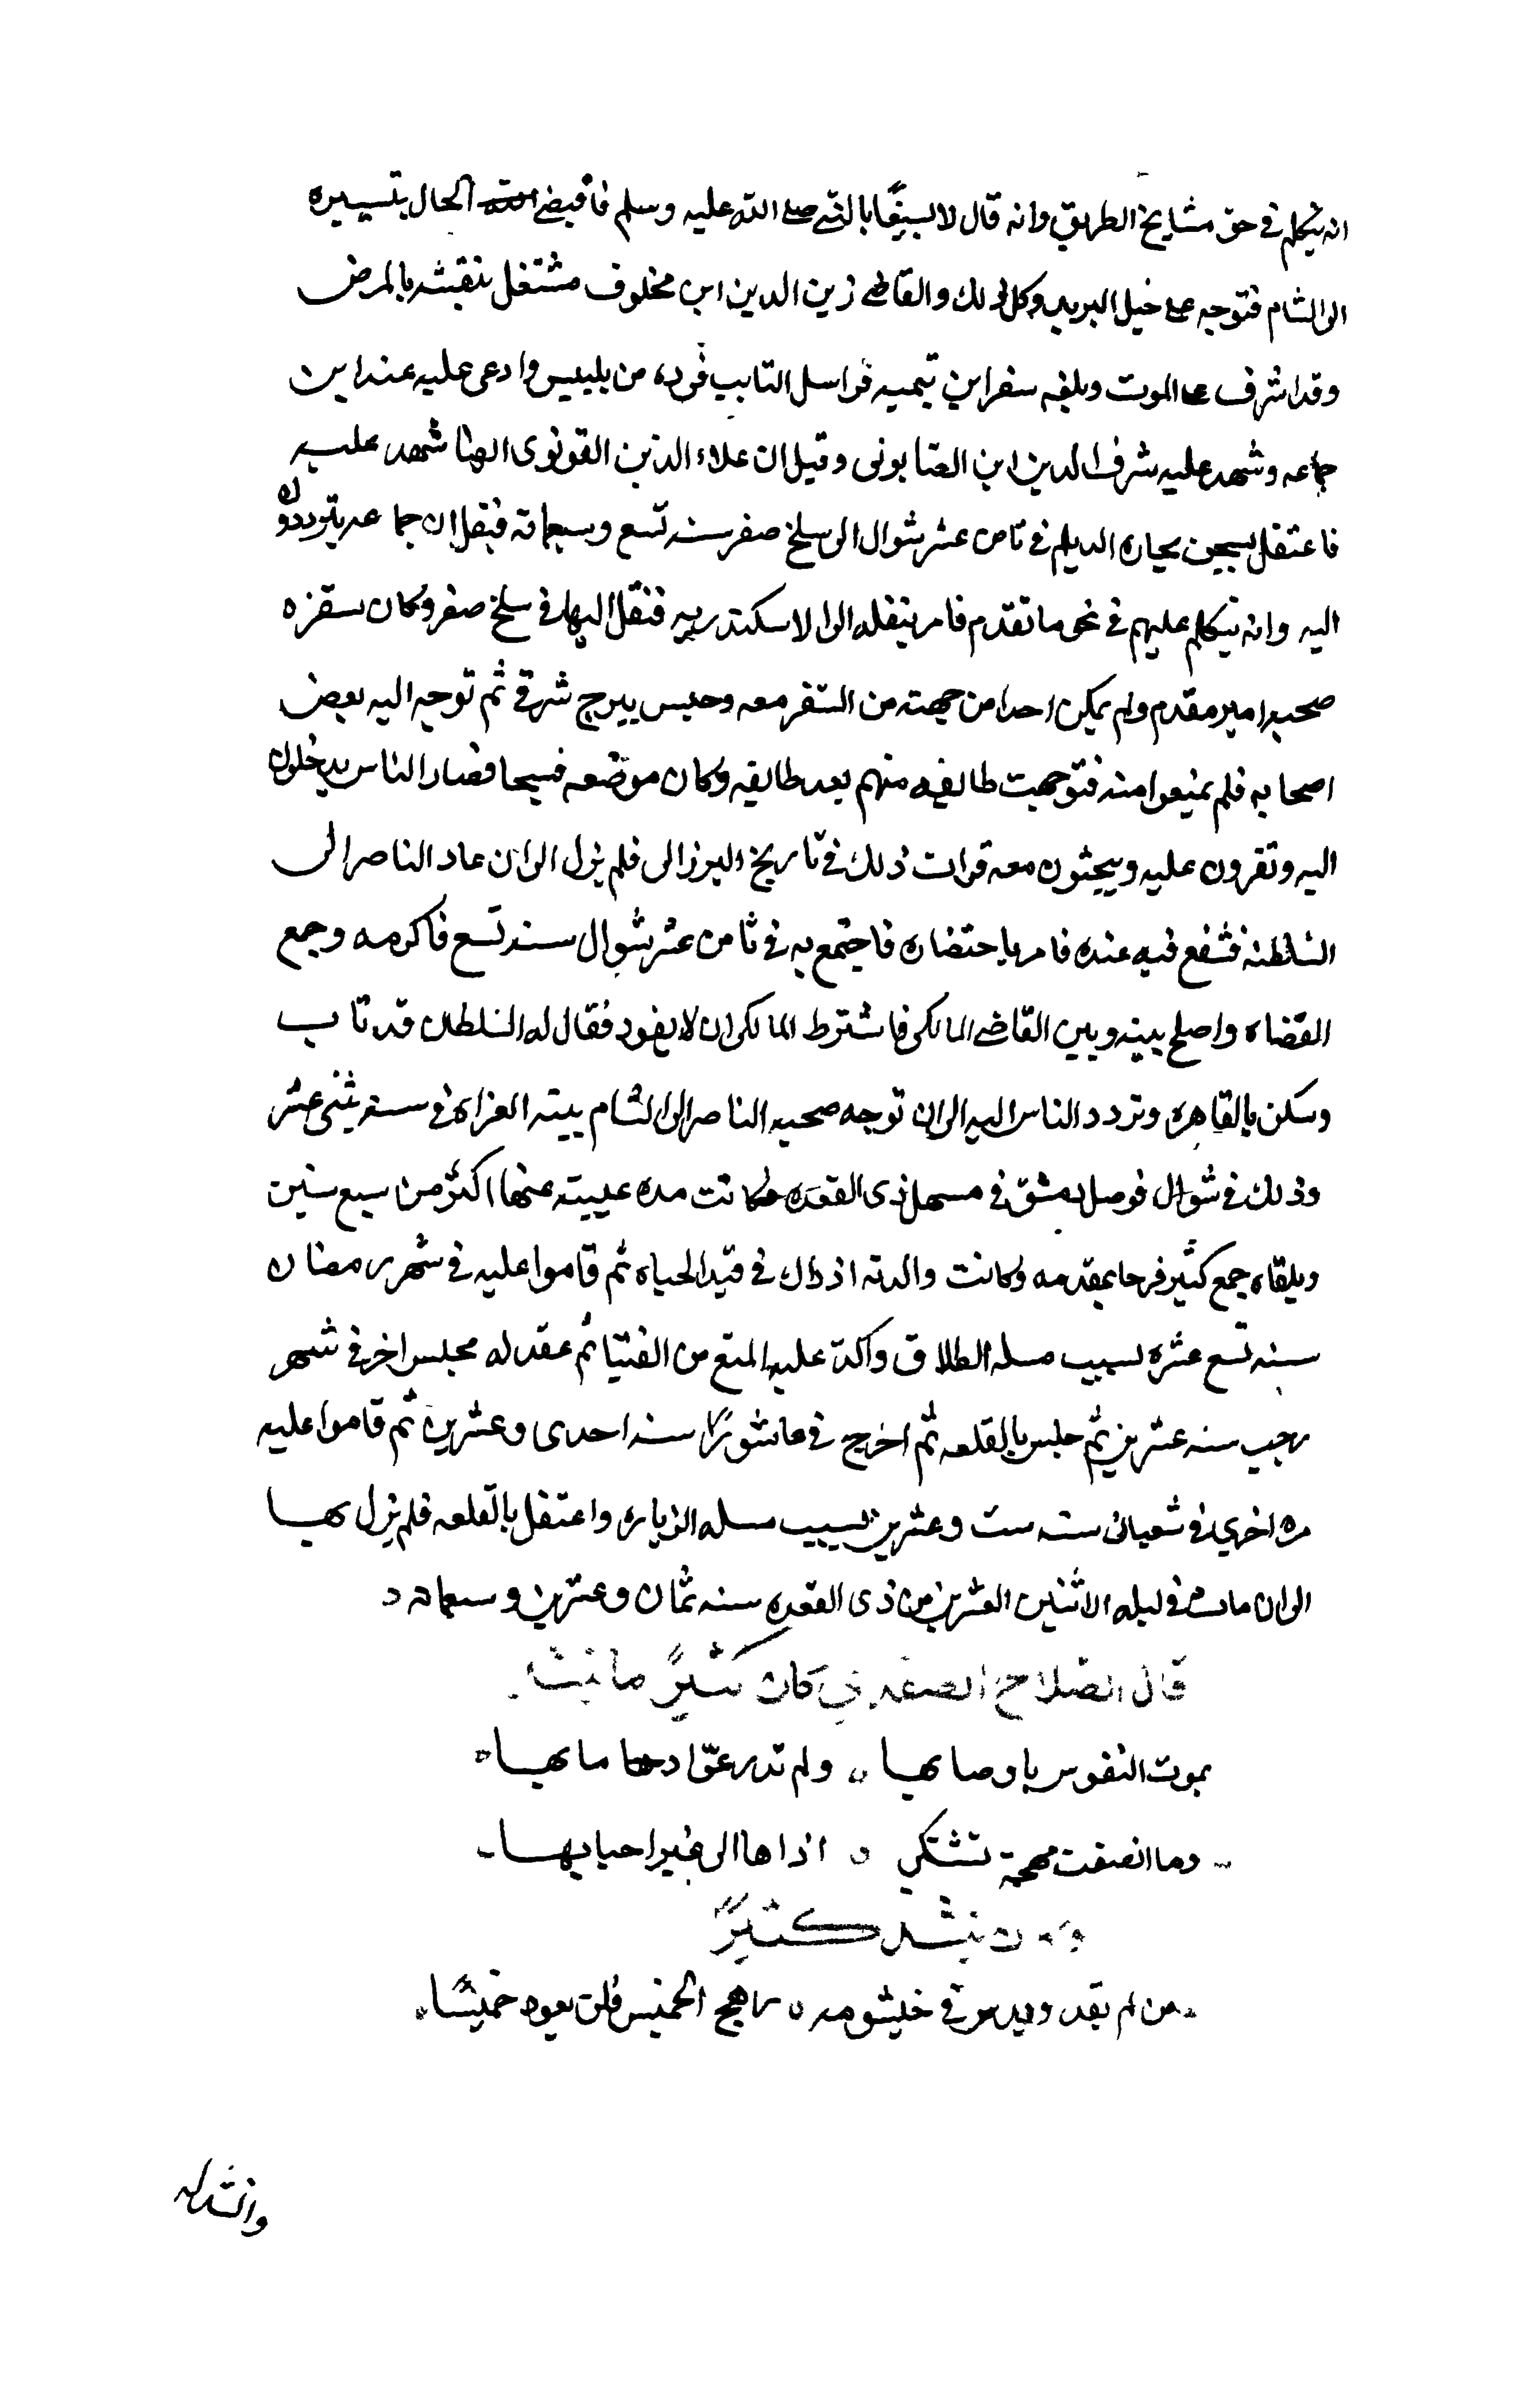 انه يتكلم في حق مشايخ الطريق وانه قال لا يستغاث بالنبي صلى الله عليه وسلم فاقتضى الحال بتسييره
الى الشام فتوجه على خيل البريد وكل ذلك والقاضي زين الدين ابن مخلوف مشتغل بنفسه بالمرض
وقد اشرف على الموت وبلغه سفر ابن تيميه فراسل النايب فرده من بلبيس وادعى عليه عند ابن
جماعه وشهد عليه شرف الدين ابن الصابونى وقيل ان علاء الدين القونوى ايضا شهد عليه
فاعتقل بسجن بحاره الديلم في ثامن عشر شوال الى سلخ صفر سنه تسع وسبعماية فنقل ان جماعه يترددون
اليه وانه يتكلم عليهم في نحو ما تقدم فامر بنقله الى الاسكندريه فنقل اليها في سلخ صفر وكان سفره
صحبه امير مقدم ولم يمكن احدا من جهته من السفر معه وحبس ببرج شرقي ثم توجه اليه بعض
اصحابه فلم يمنعوا منه فتوجهت طايفه منهم بعد طايفه وكان موضعه فسيحا فصار الناس يدخلون
اليه ويقرون عليه ويبحثون معه قرات ذلك في تاريخ البرزالى فلم يزل الى ان عاد الناصر الى
السلطنه فشفع فيه عنده فامر باحضاره فاجتمع به في ثامن عشر شوال سنه تسع فاكرمه وجمع
القضاه واصلح بينه وبين القاضي المالكى فاشترط المالكى ان لا يعود فقال له السلطان قد تاب
وسكن بالقاهره وتردد الناس اليه الى ان توجه صحبه الناصر الى الشام بنيه الغزاه في سنه ثنى عشر
وذلك في شوال فوصل دمشق في مستهل ذى القعده وكانت مده غيبته عنها اكثر من سبع سنين
وتلقاه جمع كثير فرحا بمقدمه وكانت والدته اذ ذاك في قيد الحياه ثم قاموا عليه في شهر رمضان
سنه تسع عشره بسبب مسله الطلاق واكد عليه المنع من الفتيا ثم عقد له مجلس اخر في شهر
رجب سنه عشرين ثم حبس بالقلعه ثم اخرج في عاشورا سنه احدى وعشرين ثم قاموا عليه
مره اخرى في شعبان سنه ست وعشرين بسبب مسله الزياره واعتقل بالقلعه فلم يزل بها
الى ان مات في ليله الاثنين العشرين من ذى القعده سنه ثمان وعشرين وسبعمايه
قال الصلاح الصفدي كان كثيرًا ما ينشد
تموت النفوس باوصابها ولم تدر عوادها ما بها
وما انصفت مهجة تشتكي اذاها الى غير احبابها
وكان ينشد كثيرًا
من لم يقد ويدس في خيشومه رهج الخميس فلن يعود خميسًا
وانشد له